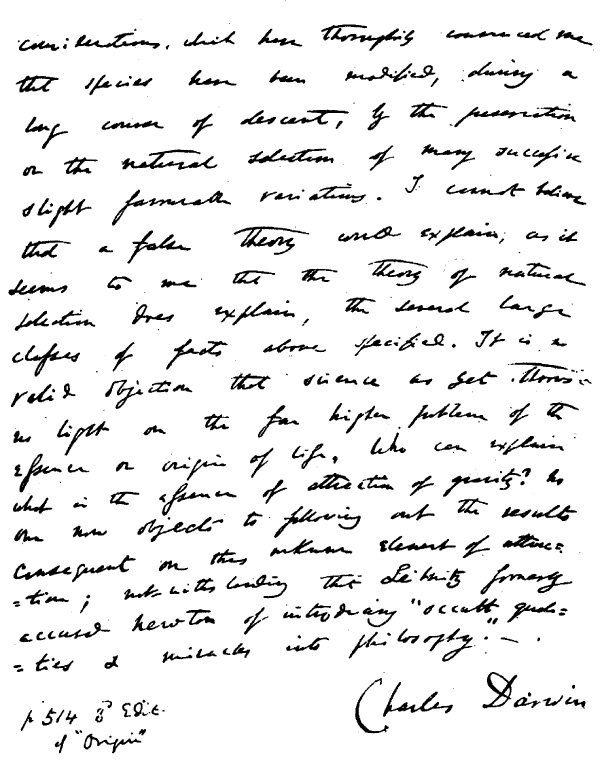 considerations, which have thoroughly convinced me
that species have been modified, during a
long course of descent, by the preservation
or the natural selection of many successive
slight favourable variations. I cannot believe
that a false theory would explain, as it
seems to me that the theory of natural
selection does explain, the several large
classes of facts above specified. It is no
valid objection that science as yet throws
no light on the far higher problem of the
essence or origin of life. Who can explain
what is the essence of attraction of gravity? No
one now objects to following out the results
consequent on this unknown element of attrac=
=tion; notwithstanding that Leibnitz formerly
accused Newton of introducing "occult quali=
=ties & miracles into philosophy." —.
Charles Darwin
p 514 3d Edit.
of "Origin"